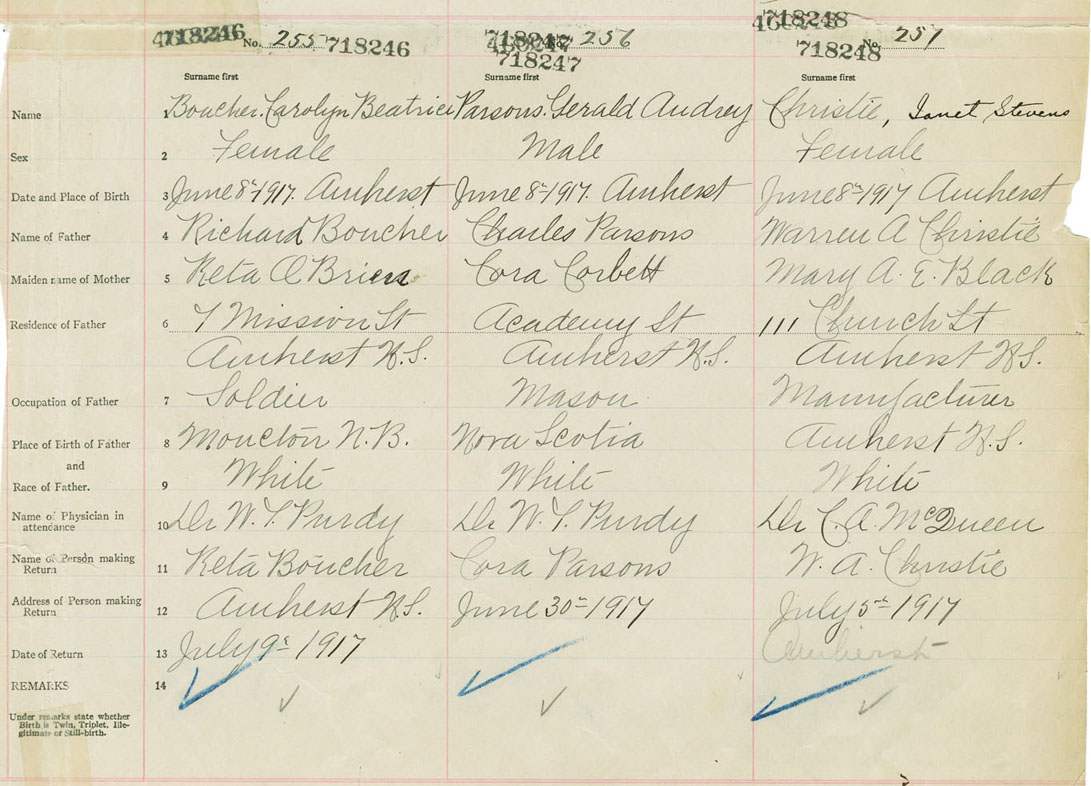 718246 No. 255 718246 718247 256 718247 718248 No. 257 718248
Surname first Surname first Surname first
Name 1 Boucher. Carolyn Beatrice Parsons. Gerald Audrey Christie, Janet Stevens
Sex 2 Female Male Female
Date and Place of Birth 3 June 8th 1917. Amherst June 8th 1917. Amherst June 8th 1917 Amherst
Name of Father 4 Richard Boucher Charles Parsons Warren A Christie
Maiden name of Mother 5 Reta O Brien Cora Corbett Mary A. E. Black
Residence of Father 6 7 Mission St Academy St 111 Church St
Amherst N.S. Amherst N.S. Amherst N.S.
Occupation of Father 7 Soldier Mason Manufacturer
Place of Birth of Father 8 Moncton N.B. Nova Scotia Amherst N.S.
and
Race of Father. 9 White White White
Name of Physician in attendance 10 Dr W. T. Purdy Dr W. T. Purdy Dr C. A. McQueen
Name of Person making Return 11 Reta Boucher Cora Parsons W. A. Christie
Address of Person making Return 12 Amherst N.S. June 30th 1917 July 5th 1917
Date of Return 13 July 9th 1917 Amherst
REMARKS 14
Under remarks state whether
Birth is Twin, Triplet, Ille-
gitimate or Still-birth.